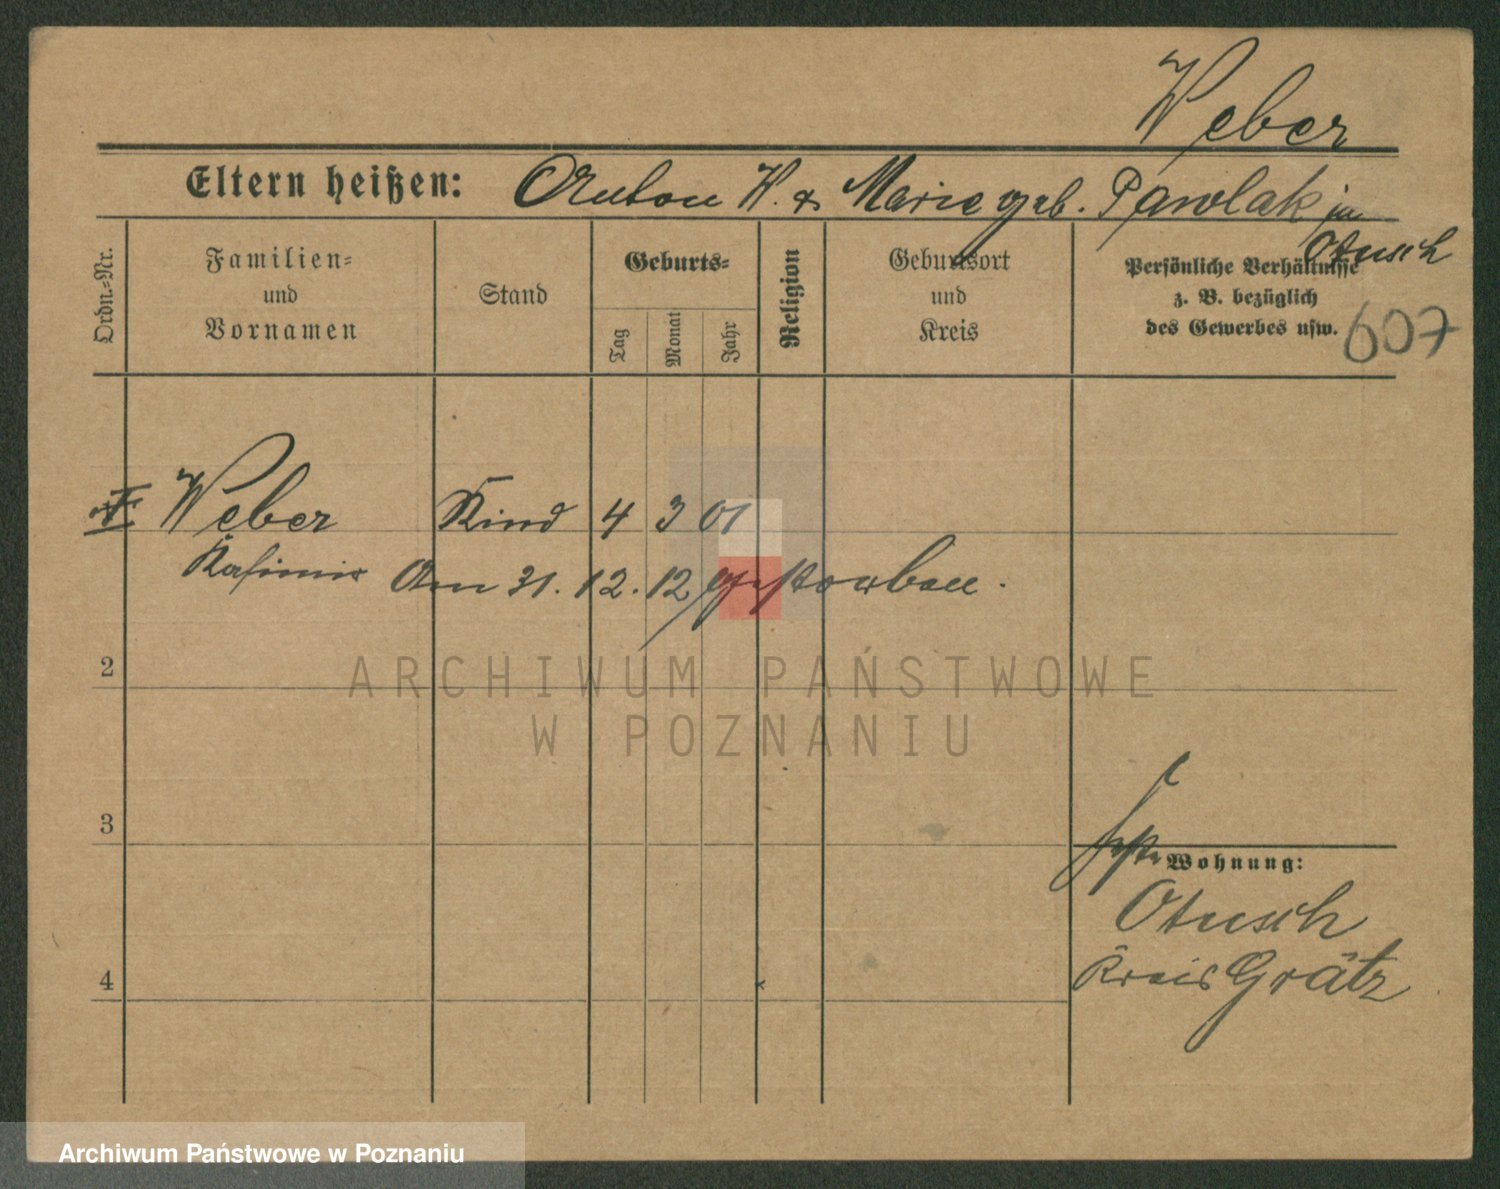 Weber
Eltern heißen: Anton W. & Marie geb. Pawlak in
Otusch
Ordn.-Nr.
Familien-
und
Vornamen
Stand
Geburts-
Tag
Monat
Jahr
Religion
Geburtsort
und
Kreis
Persönliche Verhältnisse
z. B. bezüglich
des Gewerbes usw.
607
Weber Kind 4 3 01
Kasimir Am 31. 12. 12 gestorben.
2
3
4
Wohnung:
Otusch
Kreis Grätz
ARCHIWUM PAŃSTWOWE
W POZNANIU
Archiwum Państwowe w Poznaniu